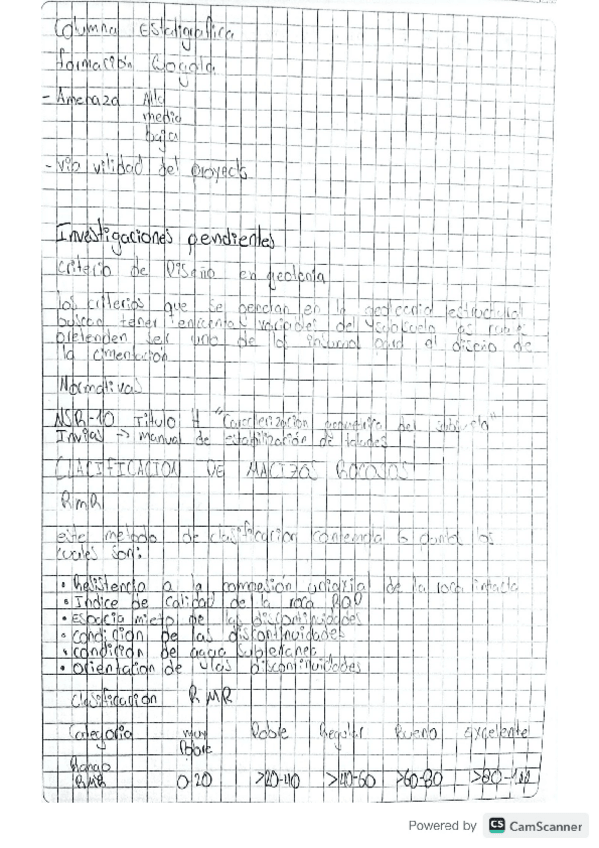 Columna Estatigrafica
formación Bogota
- Amenaza Alta
media
baja
- Vio vilidad del proyecto
Investigaciones pendientes
criterio de Diseño en geotenia
los criterios que se en la
buscan tener encuenta variables del las
pretenden ser uno de los para el diseño de
la cimentación
Normativas
NSR-10 Titulo H "Caracterizacion geotecnica del subsuelo"
Invias -> manual de estabilización de taludes
CLACIFICACION DE MACIZOS ROCOSOS
RMR
este metodo de clasificacion contempla 6 los
cuales son:
• Resistencia a la compresión uniaxial de la roca intacta
• Indice de calidad de la roca RQD
• Espacia mieto de las discontinuidades
• condicion de las discontinuidades
• condición de agua subterranea
• orientation de las discontinuidades
Clasificacion RMR
Categoria muy Pobre Regular Bueno Excelente
Pobre
Rango
RMR 0-20 >20-40 >40-60 >60-80 >80-100
Powered by CS CamScanner